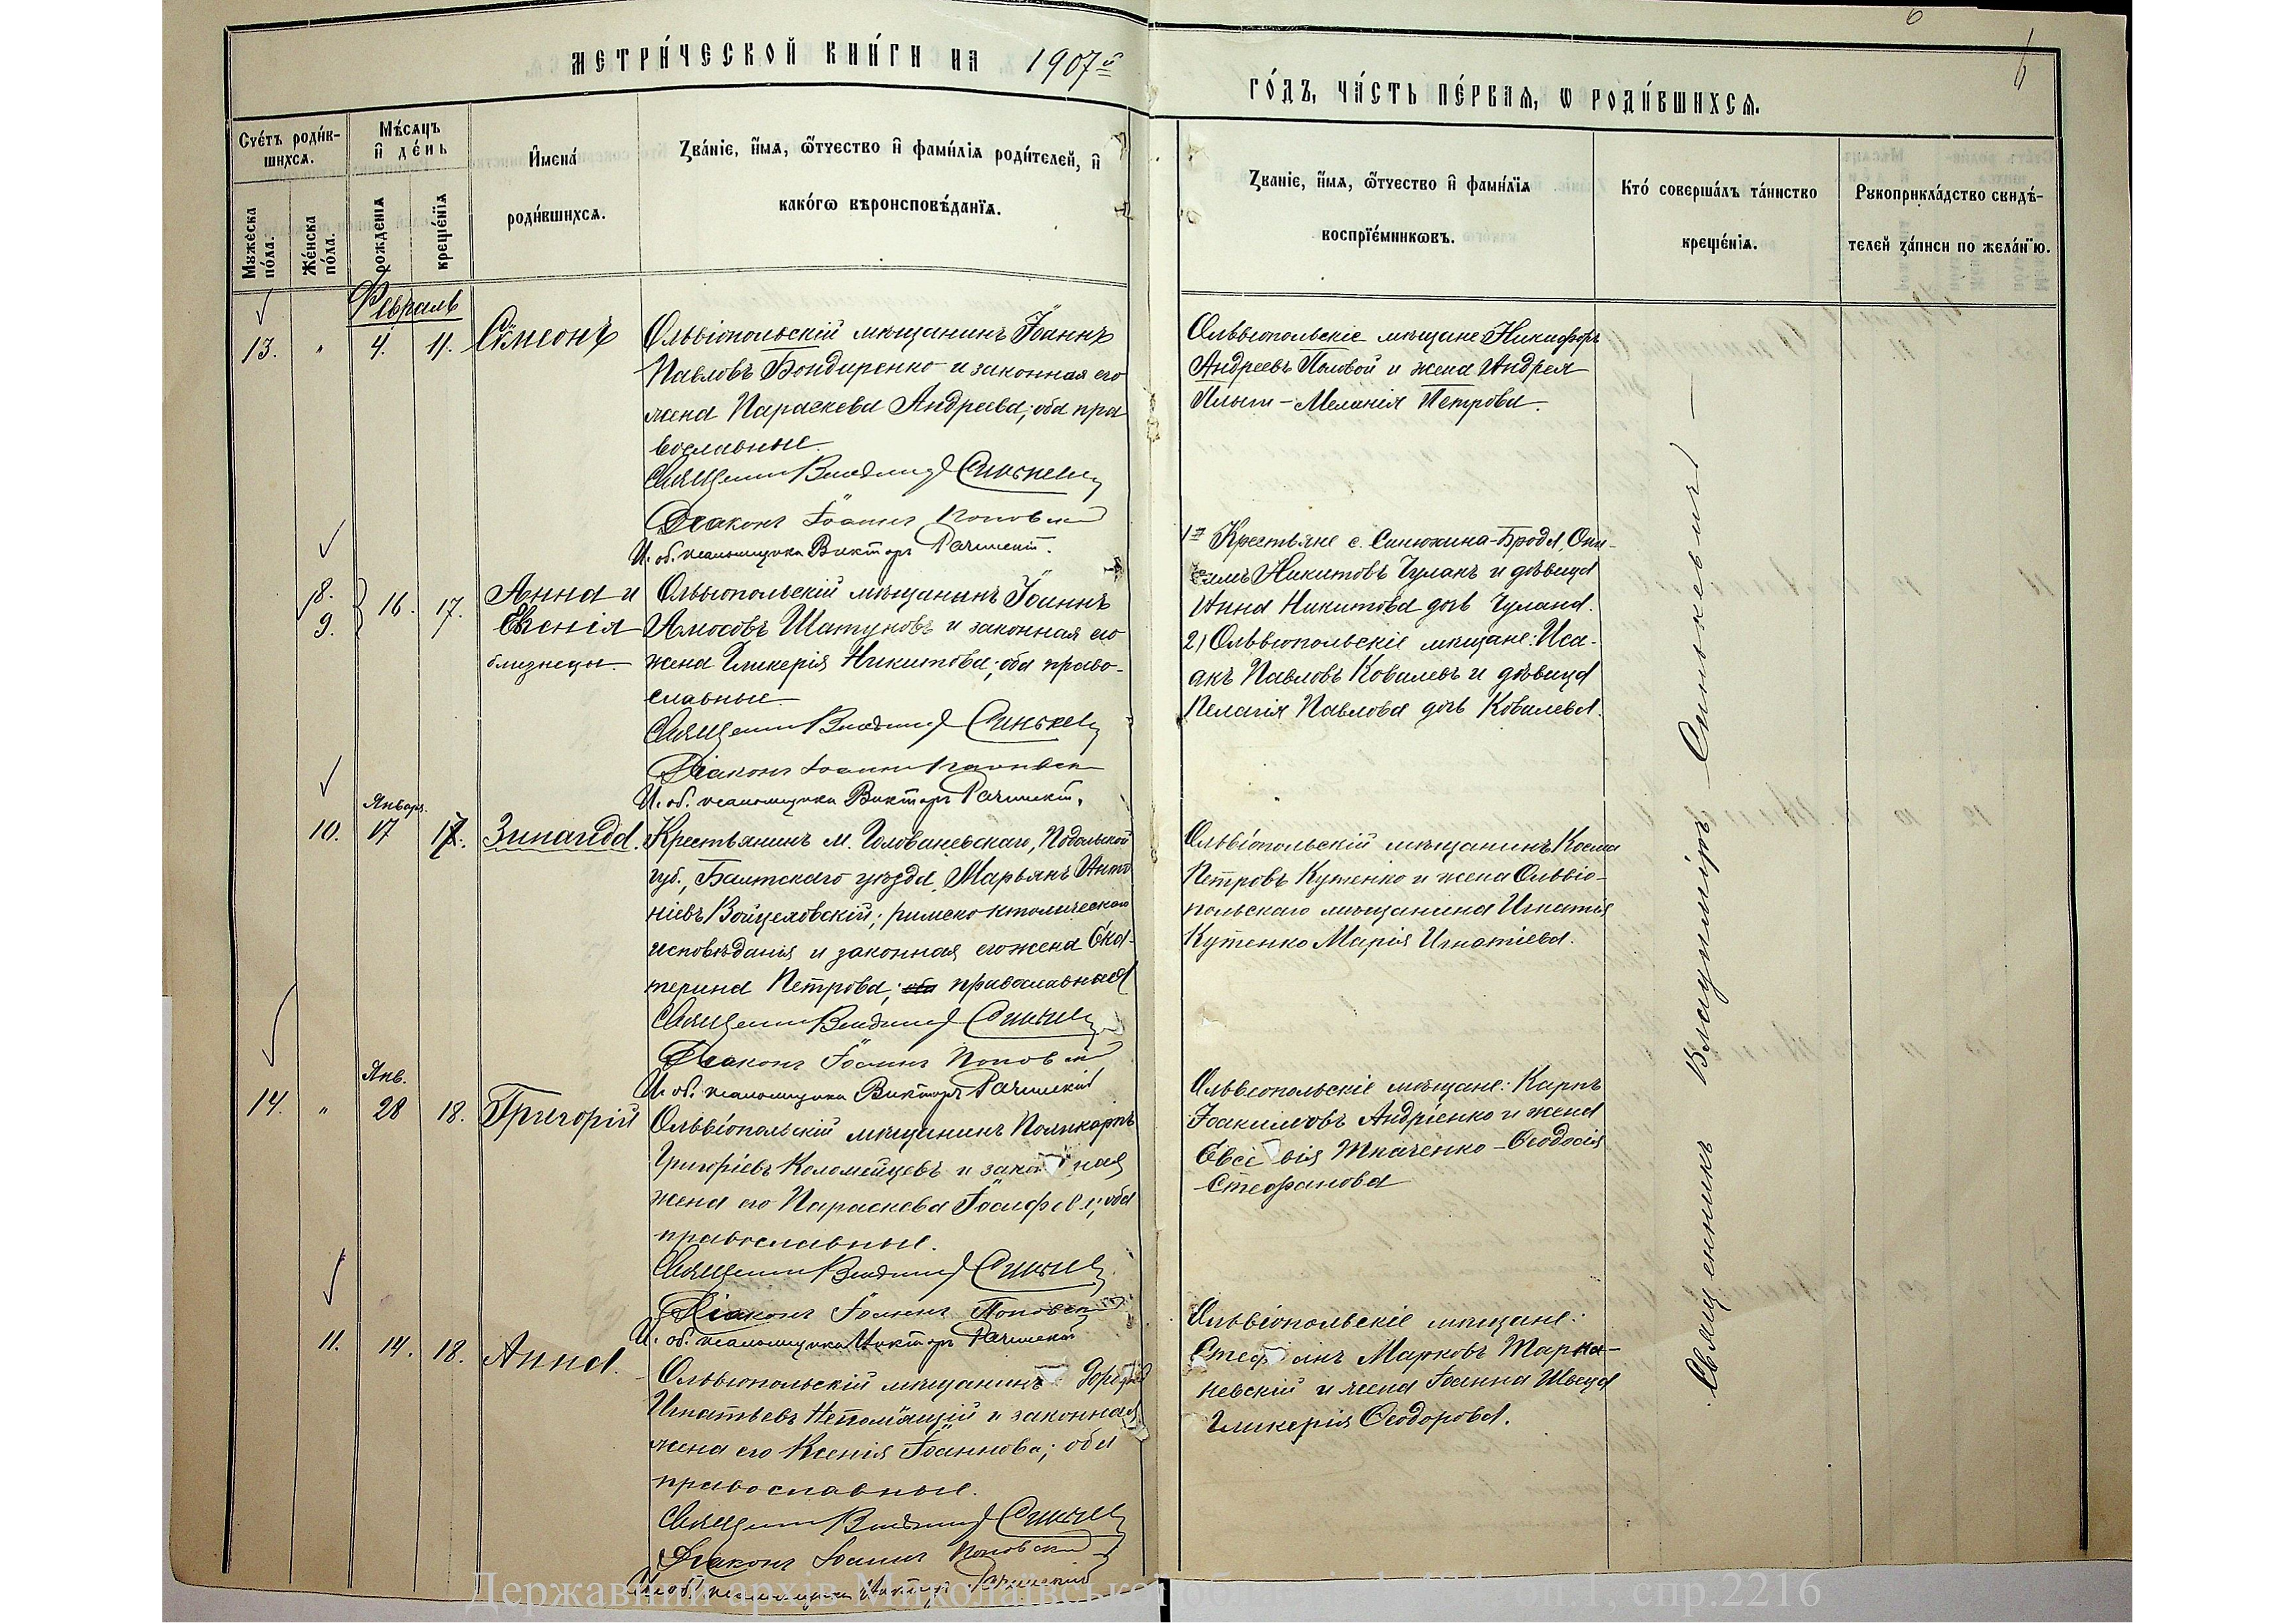 МЕТРИ́ЧЕСКОЙ КНИ́ГИ НА 1907й
ГО́ДЪ, ЧА́СТЬ ПЕ́РВАЯ, Ѡ РОДИ́ВШИХСЯ.
6
6
Счéтъ роди́в-
шихся.
Мѣ́сяцъ
и҆ де́нь
Мꙋжеска
по́ла.
Же́нска
по́ла.
рожденія
креще́нїя
И҆мена́
роди́вшихся.
Зва́нїе, и҆́мя, ѻ҆́тчество и҆ фами́лїя роди́телей, и҆
како́гѡ вѣроисповѣ́данїя.
Зва́нїе, и҆́мя, ѻ҆́тчество и҆ фами́лїя
воспрїе́мникѡвъ.
Кто́ соверша́лъ та́инство
креще́нїя.
Рꙋкоприкла́дство свидѣ́-
телей за́писи по жела́нїю.
Февраль
13. " 4. 11. Сѵмеонъ
Ольвіопольскій мѣщанинъ Іоаннъ
Павловъ Бондаренко и законная его
жена Параскева Андреева; оба пра
вославные.
Священни Владимір Синькевич
Діаконъ Іоаннъ Поповскій
И. об. псаломщика Викторъ Рачинскій.
Ольвіопольскіе мѣщане: Никифоръ
Андреевъ Половой и жена Андрея
– Меланія Петрова.
8.
9.
16. 17.
Анна и
Евгенія
близнецы.
Ольвіопольскій мѣщанинъ Іоаннъ
Амосовъ Шатуновъ и законная его
жена Гликерія Никитова; оба право-
славные.
Священни Владимір Синькевич
Діаконъ Іоаннъ Поповскій
И. об. псаломщика Викторъ Рачинскій.
1) Крестьяне с. Синюхина-Брода, Они-
симъ Никитовъ Чуланъ и дѣвица
Анна Никитова дочь Чулана.
2) Ольвіопольскіе мѣщане: Иса-
акъ Павловъ Ковалевъ и дѣвица
Пелагія Павлова дочь Ковалева.
Января.
10. 17 17. Зинаида.
Крестьянинъ м. Голованевскаго, Подольской
губ., Балтскаго уѣзда, Марьянъ Анто
ніевъ Войцеховскій; римско-католическаго
исповѣданія и законная его жена Ека-
терина Петрова; православная
Священни Владимір Синькевич
Діаконъ Іоаннъ Поповскій
И. об. псаломщика Викторъ Рачинскій
Ольвіопольскій мѣщанинъ Косма
Петровъ Кутенко и жена Ольвіо-
польскаго мѣщанина Игнатія
Кутенко Марія Игнатіева.
Янв.
14. " 28 18. Григорій
Ольвіопольскій мѣщанинъ Поликарпъ
Григоріевъ Коломейцевъ и законная
жена его Параскева Іосифова; оба
православные.
Священни Владимір Синькевич
Діаконъ Іоаннъ Поповскій
И. об. псаломщика Викторъ Рачинскій
Ольвіопольскіе мѣщане: Карпъ
Іоакимовъ Андріенко и жена
Евсевія Ткаченко – Ѳеодосія
Стефанова
11. 14. 18. Анна.
Ольвіопольскій мѣщанинъ Дорофей
Игнатьевъ Непомящій и законная
жена его Ксенія Іоаннова; оба
православные.
Священни Владимір Синькевич
Діаконъ Іоаннъ Поповскій
И. об. псаломщика Викторъ Рачинскій
Ольвіопольскіе мѣщане:
Стефанъ Марковъ Тарна-
невскій и жена Іоанна Швеца
Гликерія Ѳеодорова.
Священникъ Владиміръ Синькевичъ –
Державний архів Миколаївської оп.1, спр.2216